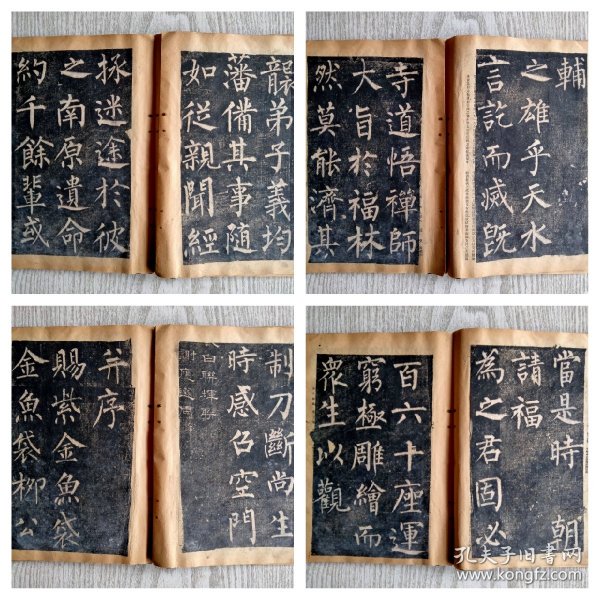 襲弟子義均
藩備其事隨
如從親聞經
拯迷途於彼
之南原遺命
約千餘輩或
輔
之雄乎天水
言訖而滅既
寺道悟禪師
大旨於福林
然莫能濟其
制刀斷尚生
時感召空門
并序
賜紫金魚袋
金魚袋柳公
當是時 朝
請福
為之君固必
百六十座運
窮極雕繪而
眾生以觀
孔夫子旧书网
www.kongfz.com